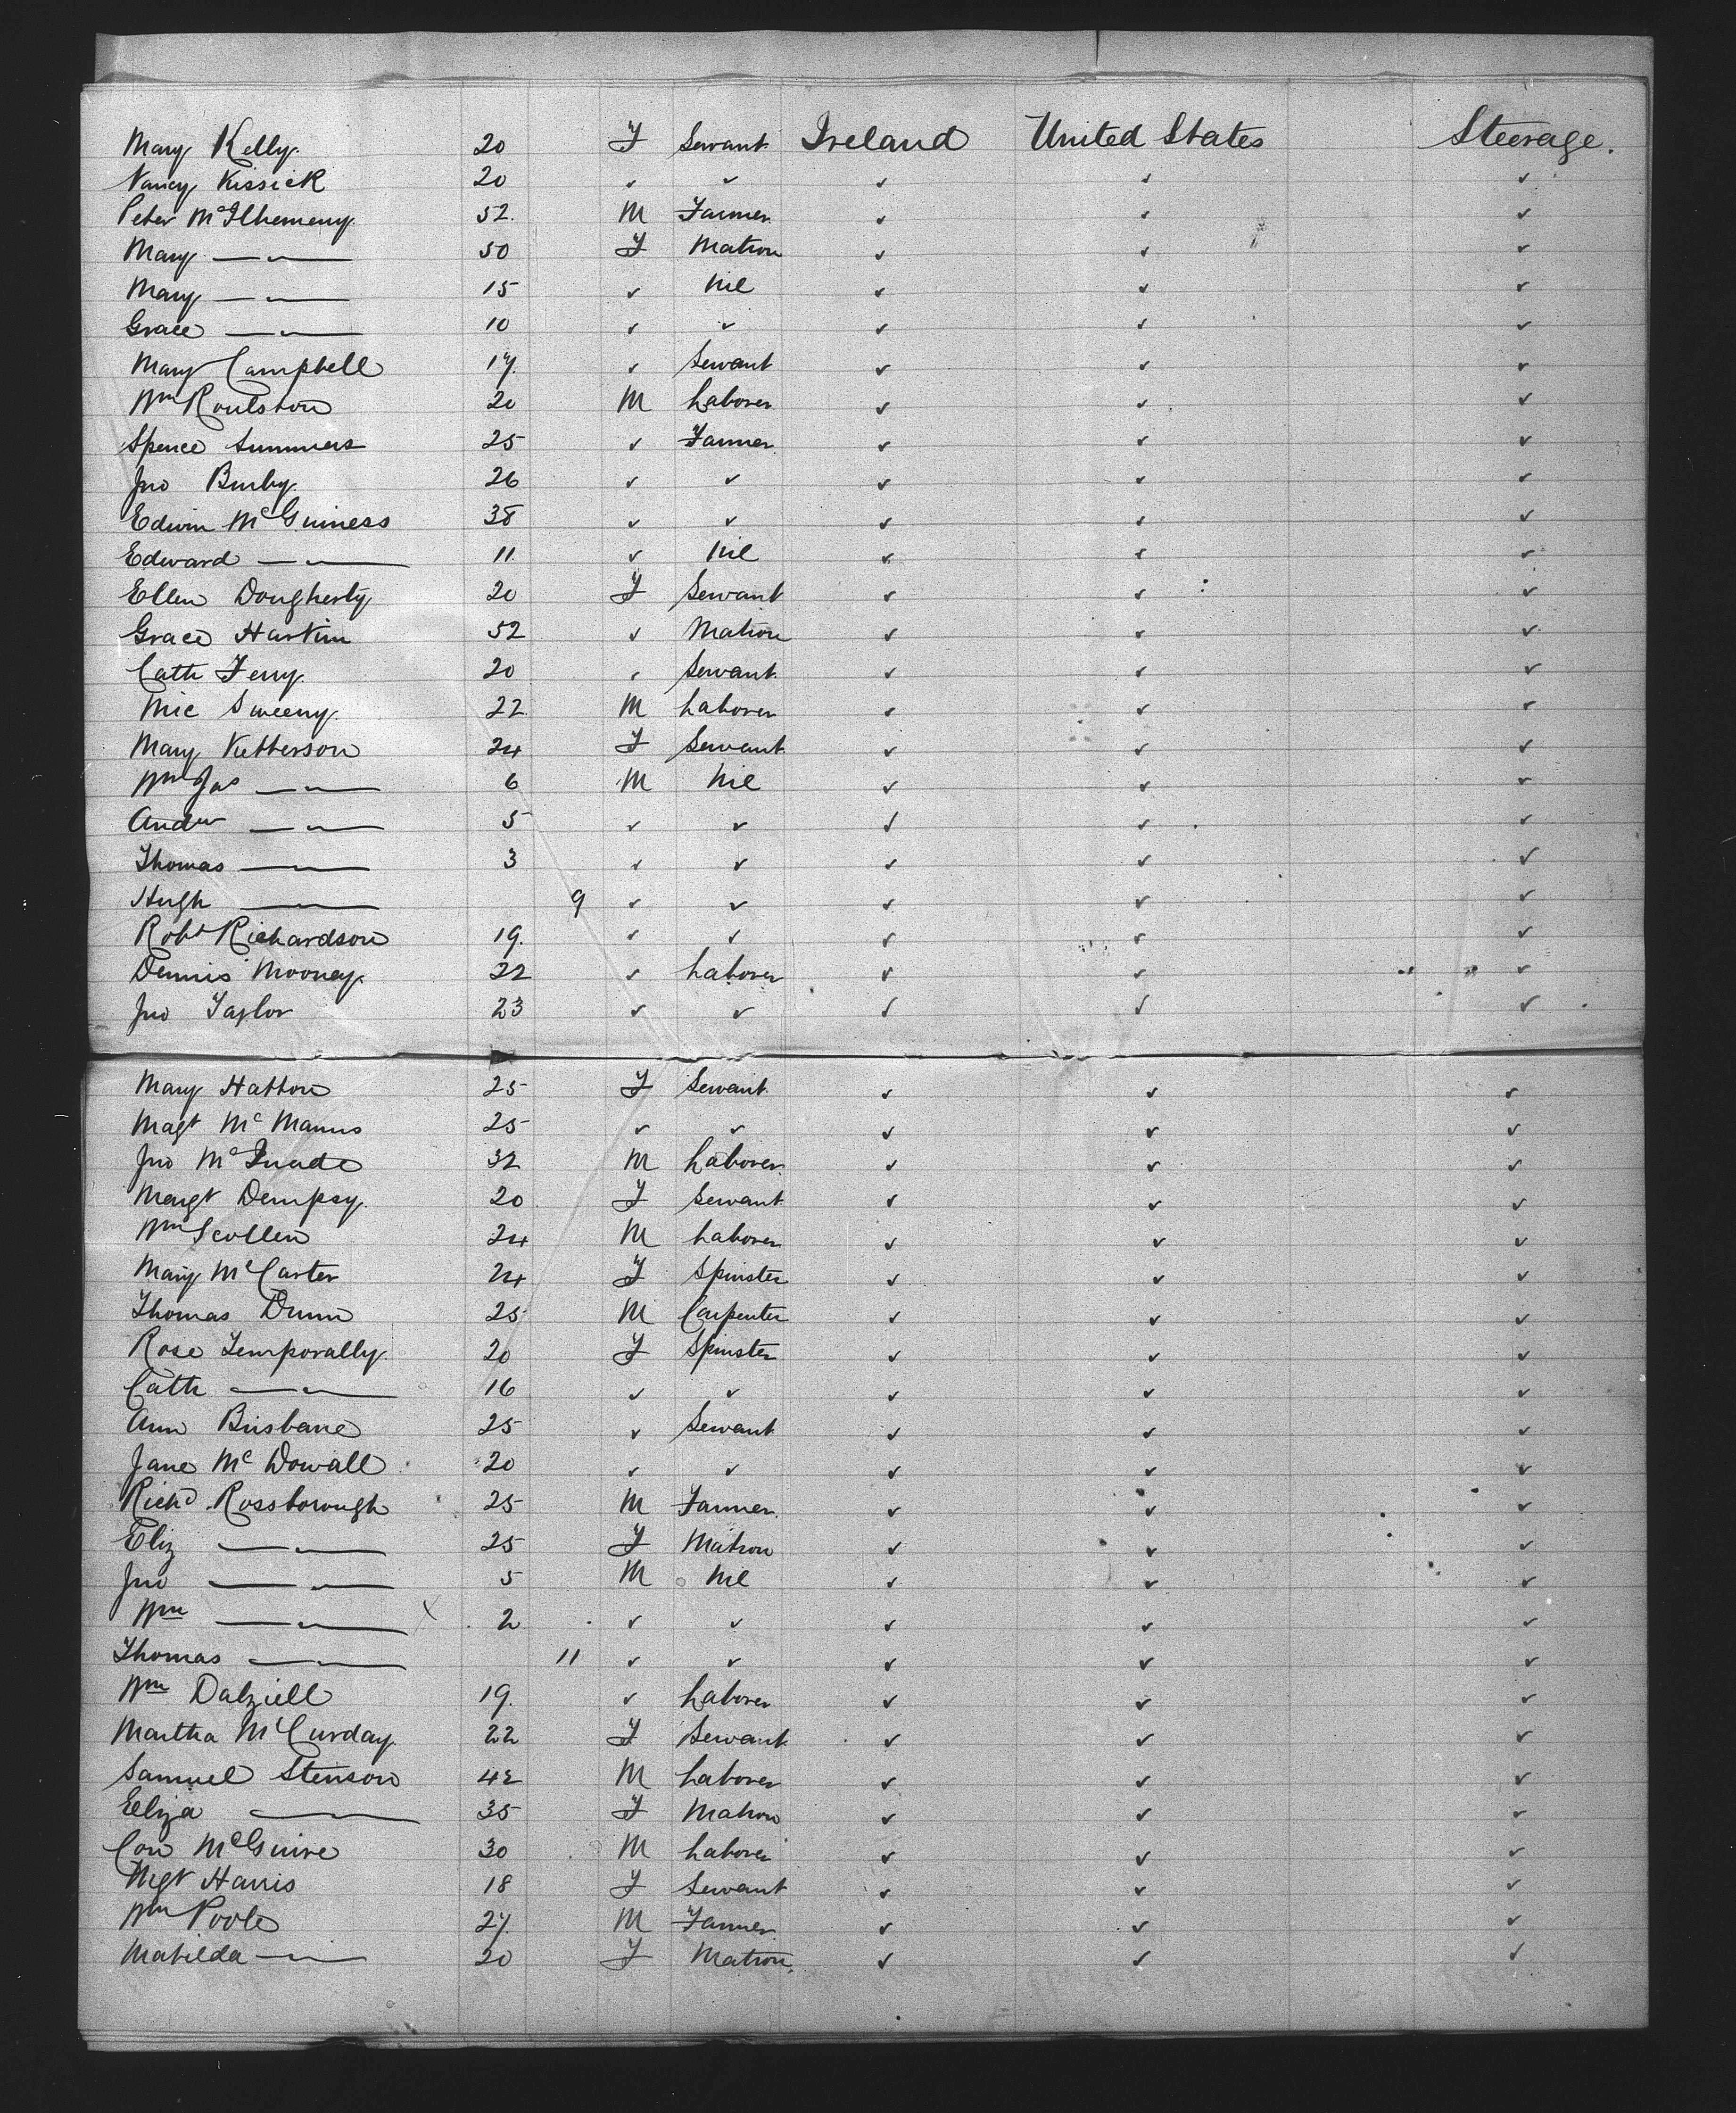 Mary Kelly. 20 F Servant Ireland United States Steerage.
Nancy Kissick 20 ✓ ✓ ✓ ✓ ✓
Peter McIlhemeny 52. M Farmer ✓ ✓ ✓
Mary —〃— 50 F Matron ✓ ✓ ✓
Mary —〃— 15 ✓ Nil ✓ ✓ ✓
Grace —〃— 10 ✓ ✓ ✓ ✓ ✓
Mary Campbell 17. ✓ Servant ✓ ✓ ✓
Wm Roulston 20 M Laborer ✓ ✓ ✓
Spence Summers 25 ✓ Farmer ✓ ✓ ✓
Jno Burby. 26 ✓ ✓ ✓ ✓ ✓
Edwin McGuiness 38 ✓ ✓ ✓ ✓ ✓
Edward —〃— 11. ✓ Nil ✓ ✓ ✓
Ellen Dougherty 20 F Servant ✓ ✓ ✓
Grace Harkin 52 ✓ Matron ✓ ✓ ✓
Cath Ferry. 20 ✓ Servant ✓ ✓ ✓
Mic Sweeny. 22 M Laborer ✓ ✓ ✓
Mary Kutterson 24 F Servant ✓ ✓ ✓
Wm Jas —〃— 6 M Nil ✓ ✓ ✓
Andw —〃— 5 ✓ ✓ ✓ ✓ ✓
Thomas —〃— 3 ✓ ✓ ✓ ✓ ✓
Hugh —〃— 9 ✓ ✓ ✓ ✓ ✓
Robt Richardson 19. ✓ ✓ ✓ ✓ ✓
Dennis Mooney. 22 ✓ Laborer ✓ ✓ ✓
Jno Taylor 23 ✓ ✓ ✓ ✓ ✓
Mary Hatton 25 F Servant ✓ ✓ ✓
Magt McManus 25 ✓ ✓ ✓ ✓ ✓
Jno McQuade 32 M Laborer. ✓ ✓ ✓
Margt Dempsy. 20 F Servant ✓ ✓ ✓
Wm Scollen 24 M Laborer ✓ ✓ ✓
Mary McCarter 24 F Spinster ✓ ✓ ✓
Thomas Dunn 25 M Carpenter ✓ ✓ ✓
Rose Temporally. 20 F Spinster ✓ ✓ ✓
Cath —〃— 16 ✓ ✓ ✓ ✓ ✓
Ann Brisbane 25 ✓ Servant ✓ ✓ ✓
Jane McDowall 20 ✓ ✓ ✓ ✓ ✓
Richd. Rossborough 25 M Farmer. ✓ ✓ ✓
Eliz —〃— 25 F Matron ✓ ✓ ✓
Jno —〃— 5 M Nil ✓ ✓ ✓
Wm —〃— 2 ✓ ✓ ✓ ✓ ✓
Thomas —〃— 11 ✓ ✓ ✓ ✓ ✓
Wm Dalziell 19. ✓ Laborer ✓ ✓ ✓
Martha McCurday. 22 F Servant ✓ ✓ ✓
Samuel Stenson 42 M Laborer ✓ ✓ ✓
Eliza —〃— 35 F Matron ✓ ✓ ✓
Con McGuire 30 M Laborer ✓ ✓ ✓
Mgt Harris 18 F Servant ✓ ✓ ✓
Wm Poole 27. M Farmer ✓ ✓ ✓
Matilda —〃— 20 F Matron. ✓ ✓ ✓